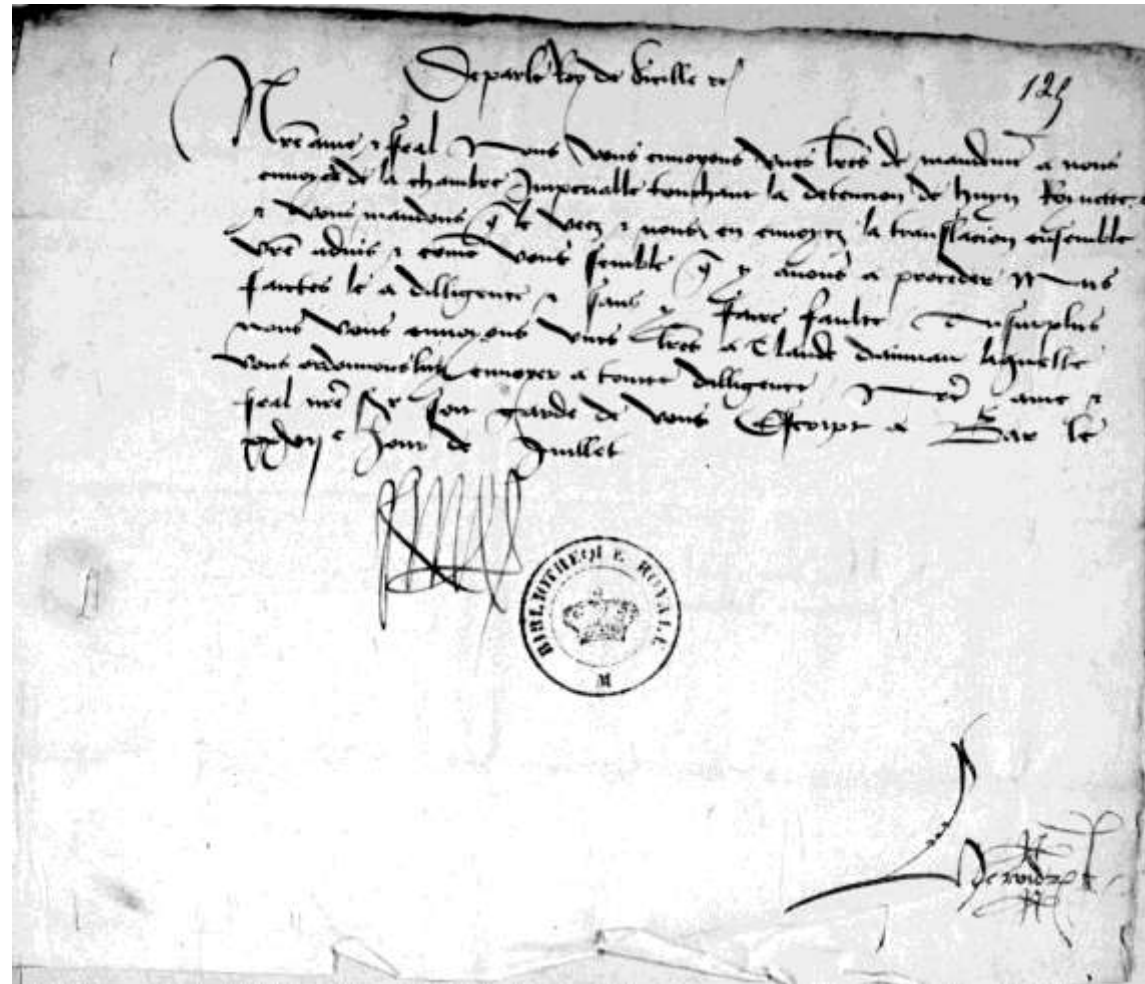 De par le Roy de Sicille etc
125
Nre ame & feal Nous vous envoyons unes lres de mandemt a nous
envoyees de la chambre Imperialle touchant la detencion de
& vous mandons q le veez & nous en envoyez la translacion ensemble
vre advis & come vous semble q y avons a proceder Mais
faictes le a dilligence & sans y faire faulte Au surplus
nous vous envoyons unes lres a Claude laquelle
vous ordonnons luy envoyer a toute dilligence Nre ame &
feal nre Sr soit garde de vous Escript a Bar le
jour de Juillet
BIBLIOTHEQUE ROYALE